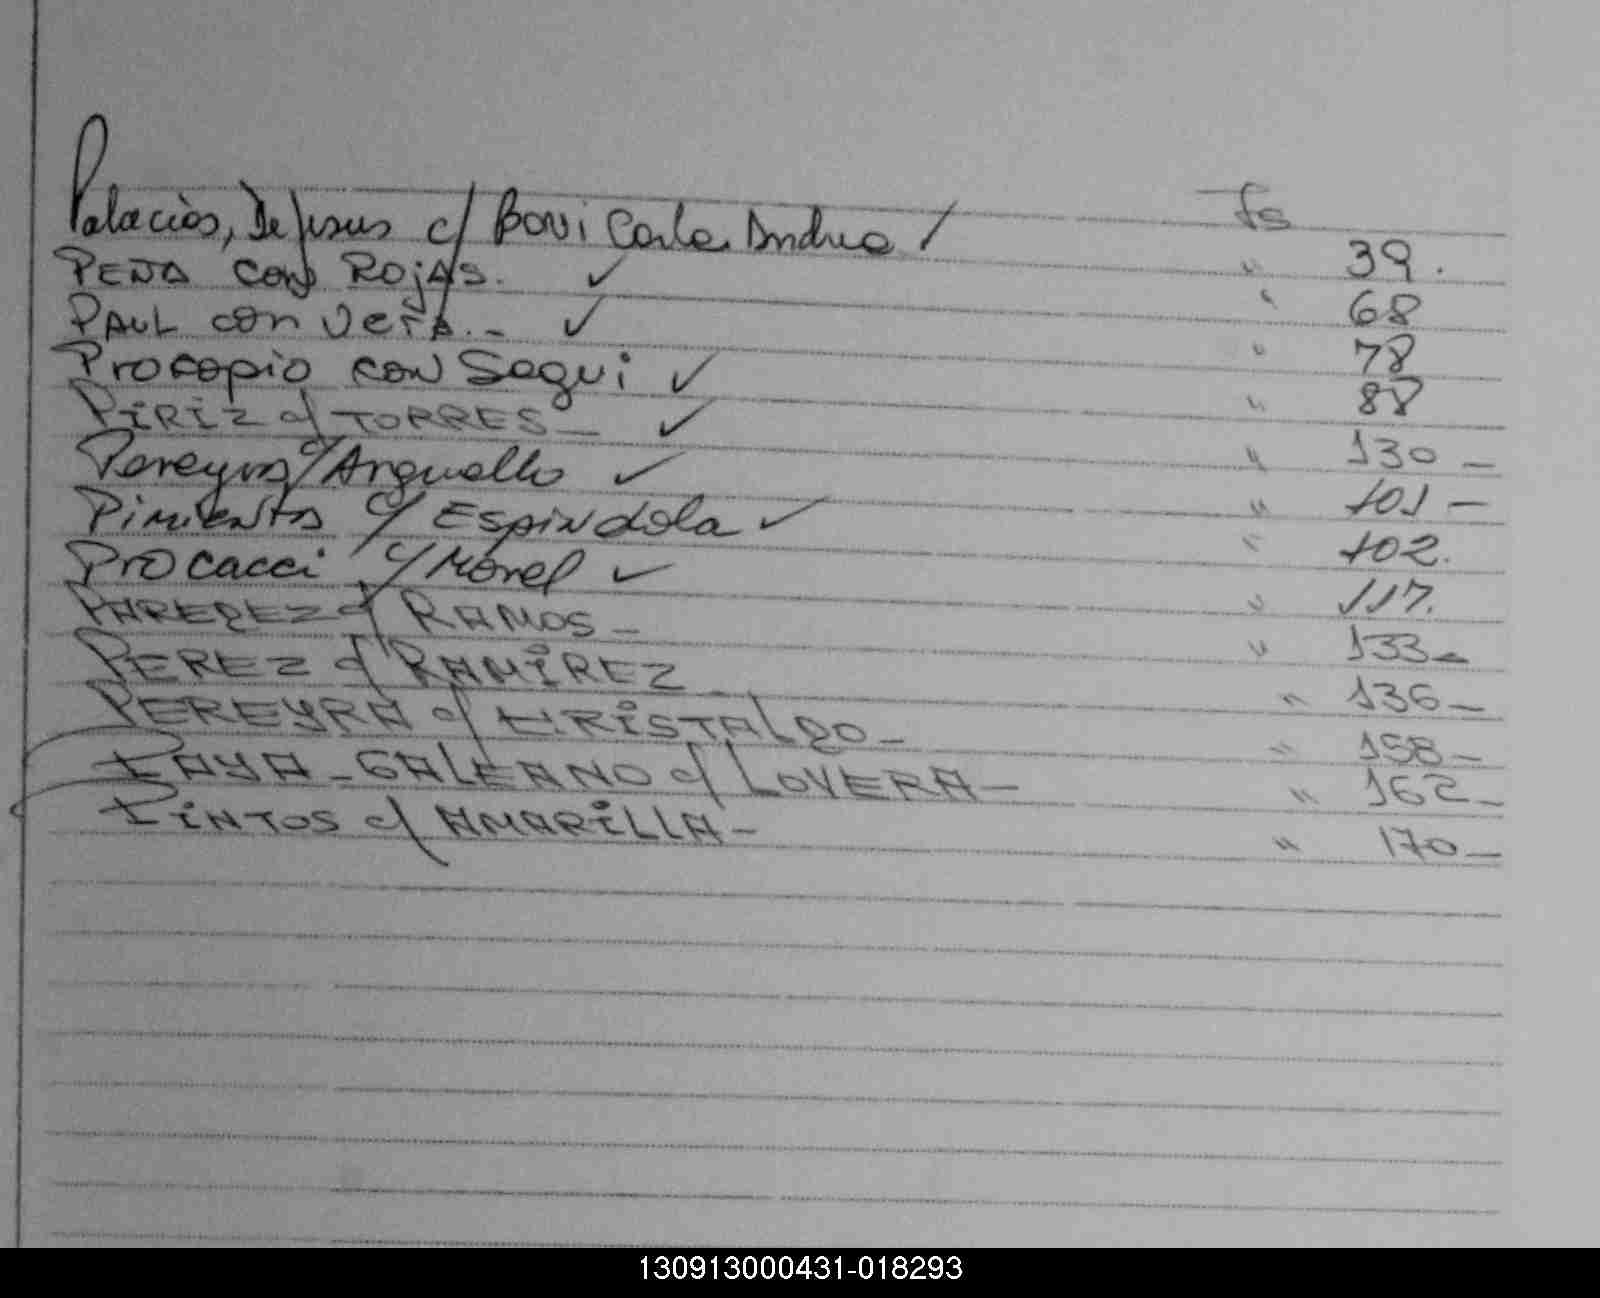 Palacios, De Jesus c/ Bovi Carla Andrea / fs
" 39.
PEÑA con ROJAS. ✓ " 68
PAUL con Vera.- ✓ " 78
Procopio con Segui ✓ " 88
PIRIZ c/ TORRES_ ✓ " 130_
Pereyra c/ Arguello ✓ " 101-
Pimienta c/ Espindola ✓ " 102.
Procacci c/ Morel ✓ " 117.
c/ RAMOS_ " 133-
PEREZ c/ RAMIREZ " 136_
PEREYRA c/ _ " 158_
PAYA_GALEANO c/ LOVERA_ " 162_
PINTOS c/ AMARILLA_ " 170_
130913000431-018293